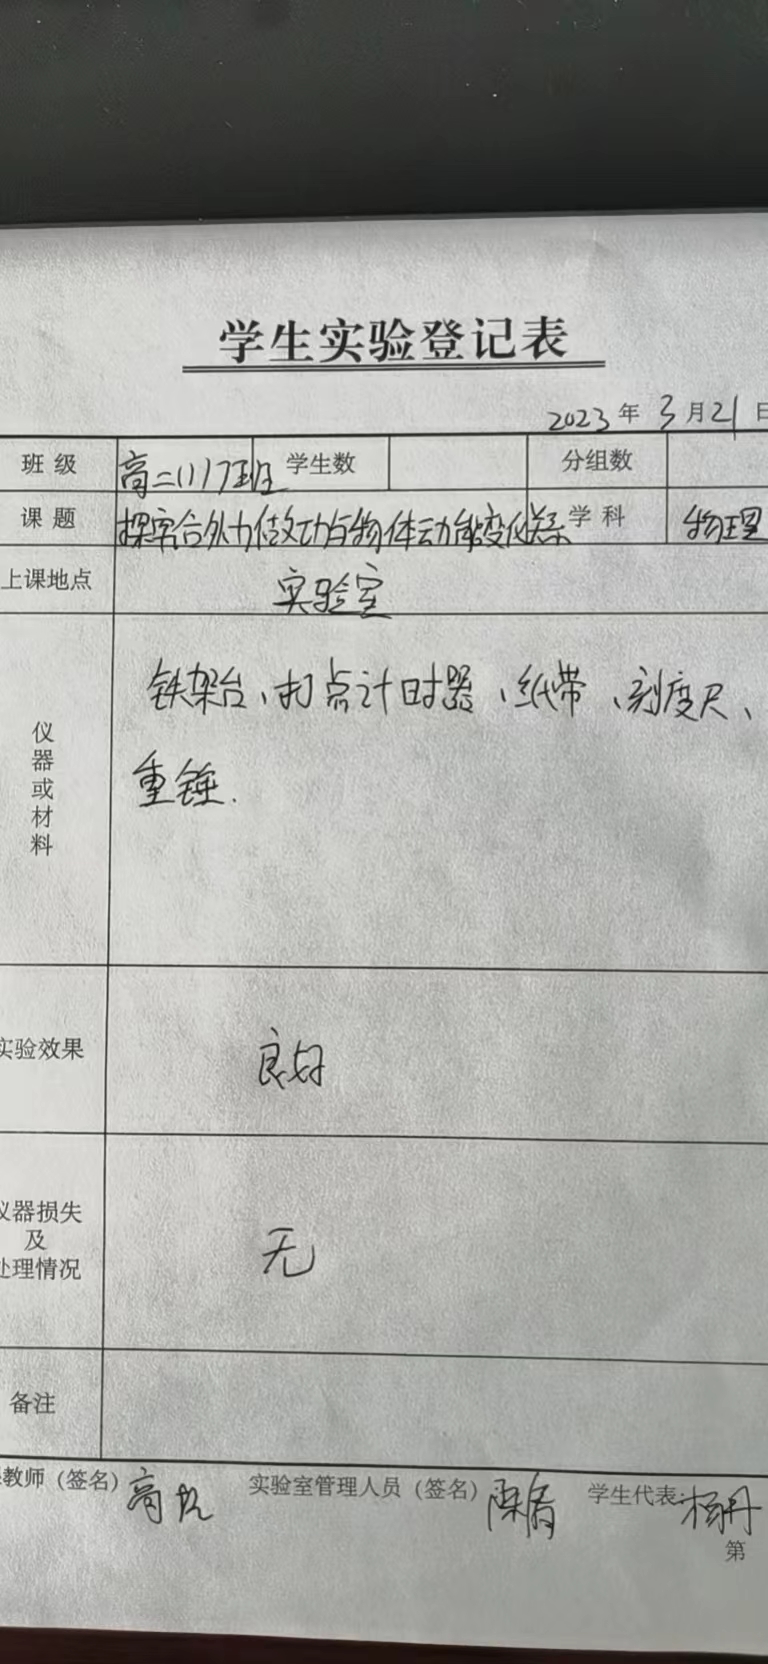 学生实验登记表
2023年3月21日
班级 高二(1)班 学生数 分组数
课题 探究合外力做功与物体动能变化关系 学科 物理
上课地点 实验室
仪器或材料 铁架台、打点计时器、纸带、刻度尺、
重锤.
实验效果 良好
仪器损失
及
处理情况 无
备注
教师（签名） 实验室管理人员（签名） 学生代表：杨丹
第